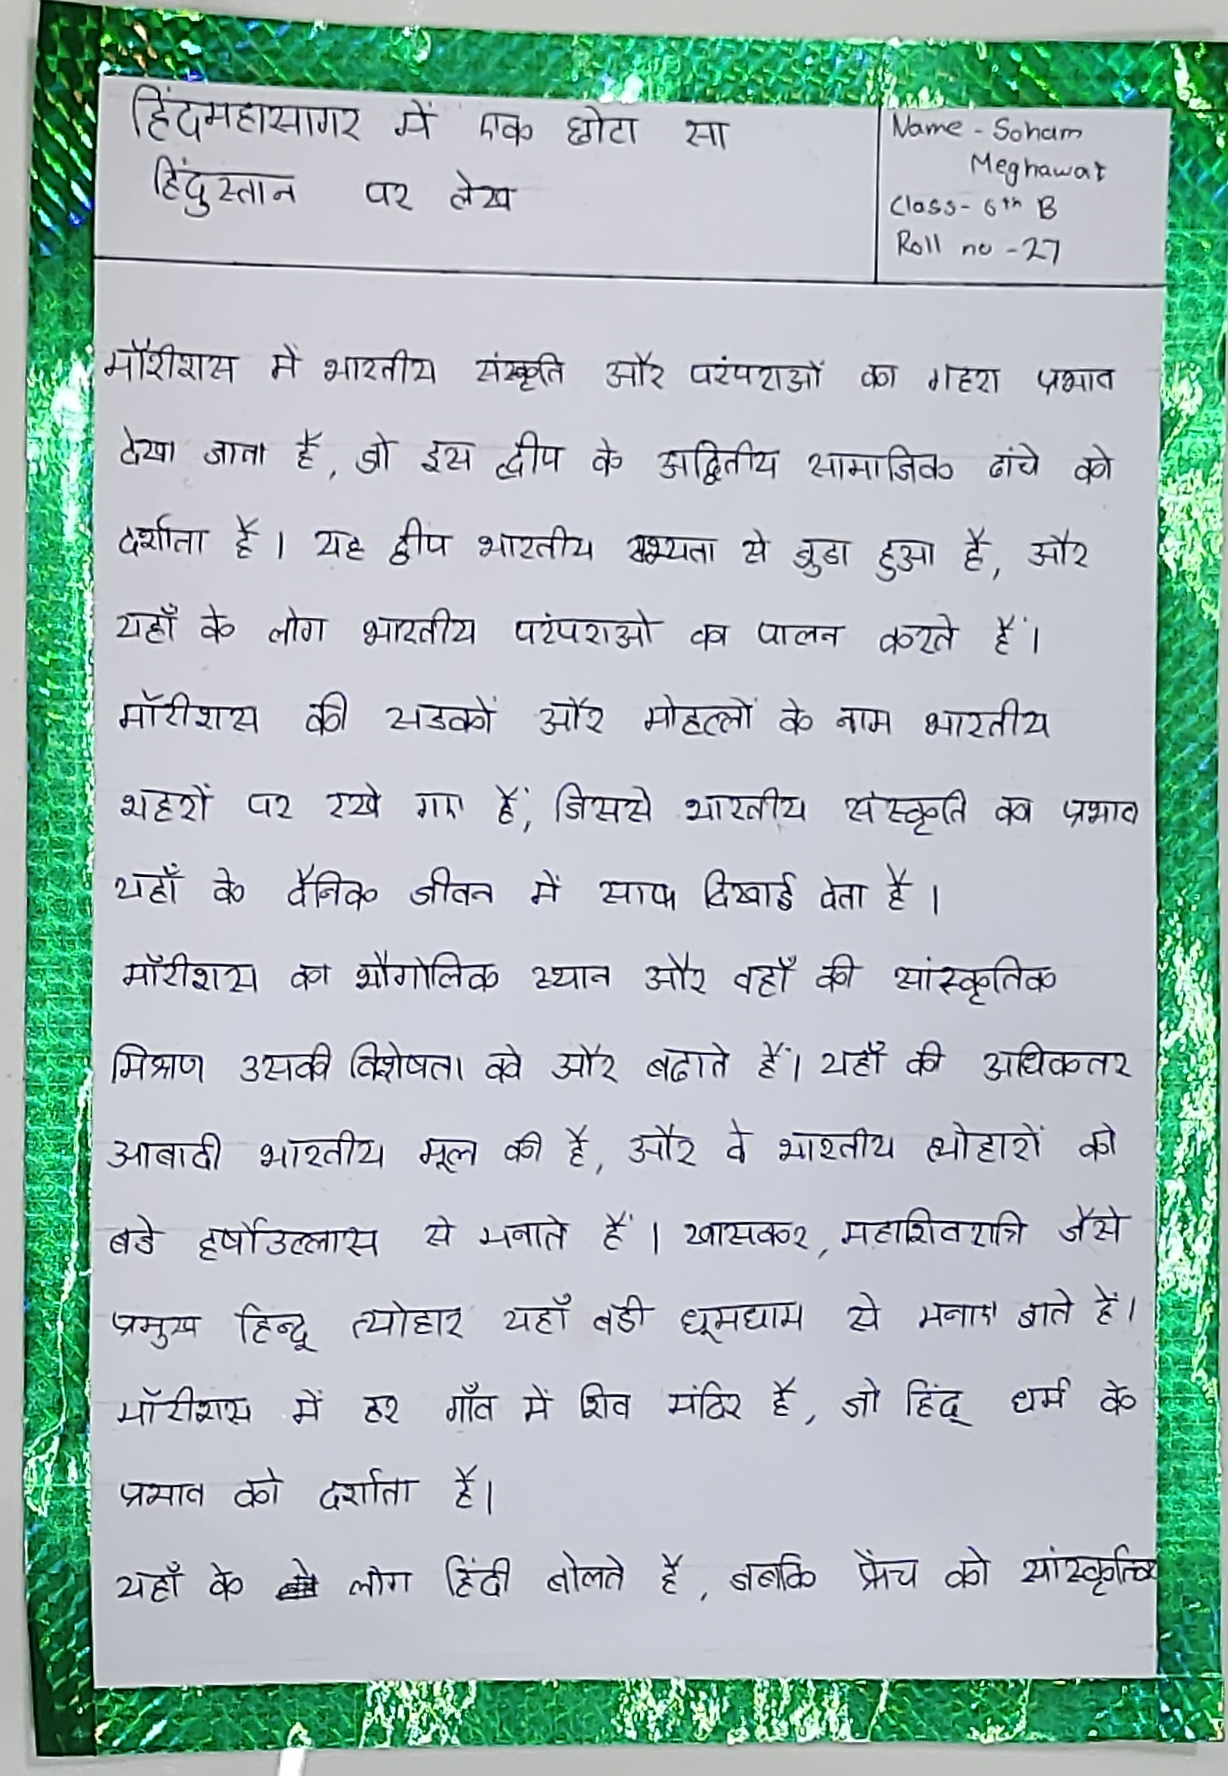 हिंदमहासागर में एक छोटा सा
हिंदुस्तान पर लेख
Name - Soham
Meghawat
Class - 6th B
Roll no - 27
मॉरीशस में भारतीय संस्कृति और परंपराओं का गहरा प्रभाव
देखा जाता है, जो इस द्वीप के अद्वितीय सामाजिक ढांचे को
दर्शाता है। यह द्वीप भारतीय सभ्यता से जुडा हुआ है, और
यहाँ के लोग भारतीय परंपराओ का पालन करते हैं।
मॉरीशस की सडकों और मोहल्लों के नाम भारतीय
शहरों पर रखे गए हैं, जिससे भारतीय संस्कृति का प्रभाव
यहाँ के दैनिक जीवन में साफ दिखाई देता है।
मॉरीशस का भौगोलिक स्थान और वहाँ की सांस्कृतिक
मिश्रण उसकी विशेषता को और बढाते हैं। यहाँ की अधिकतर
आबादी भारतीय मूल की है, और वे भारतीय त्योहारों को
बडे हर्षोउल्लास से मनाते हैं। खासकर, महाशिवरात्रि जैसे
प्रमुख हिन्दू त्योहार यहाँ बडी धूमधाम से मनाए जाते हैं।
मॉरीशस में हर गाँव में शिव मंदिर है, जो हिंदू धर्म के
प्रभाव को दर्शाता है।
यहाँ के लोग हिंदी बोलते है, जबकि फ्रेंच को सांस्कृतिक